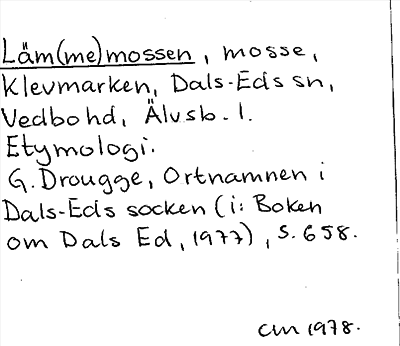 Läm(me)mossen, mosse,
Klevmarken, Dals-Eds sn,
Vedbo hd, Älvsb. l.
Etymologi.
G. Drougge, Ortnamnen i
Dals-Eds socken (i: Boken
om Dals Ed, 1977), s. 658.
CM 1978.